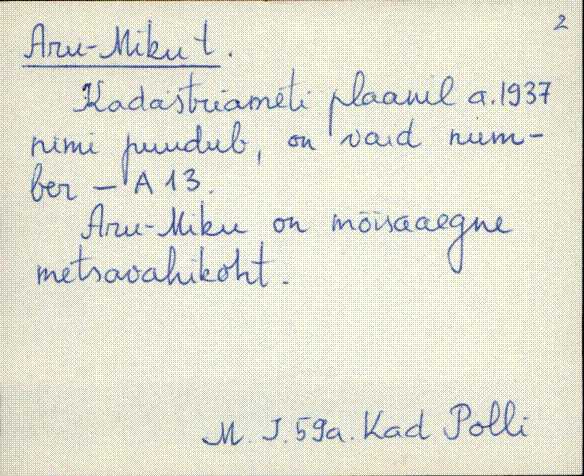 2
Aru-Miku t.
Kadastriameti plaanil a. 1937
nimi puudub, on vaid num-
ber - A 13.
Aru-Miku on mõisaaegne
metsavahikoht.
M. J. 59a. Kad Polli